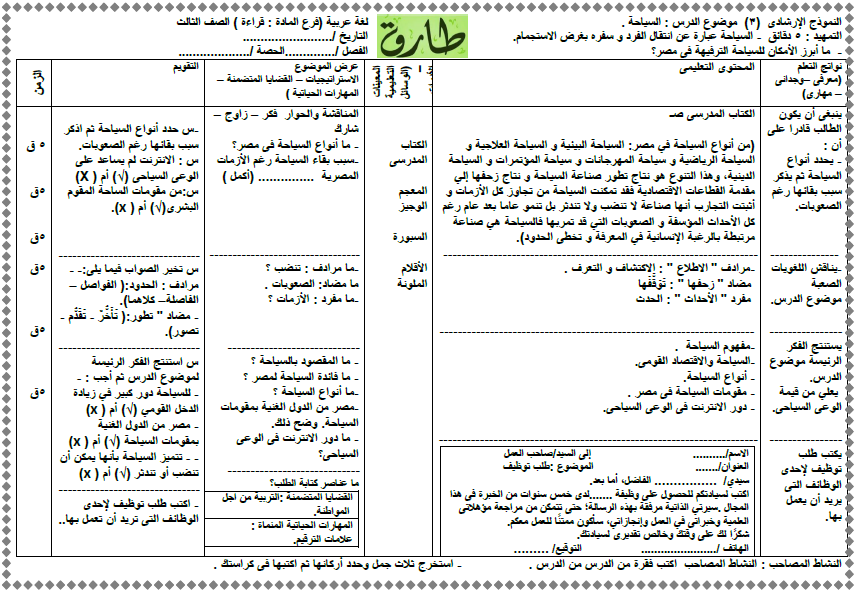 النموذج الإرشادى (٣) موضوع الدرس : السياحة .
لغة عربية (فرع المادة : قراءة ) الصف الثالث
طارق
التمهيد : ٥ دقائق - السياحة عبارة عن انتقال الفرد و سفره بغرض الاستجمام.
التاريخ /........................
- ما أبرز الأمكان للسياحة الترفيهة فى مصر؟
الفصل /..............الحصة /....................
نواتج التعلم
(معرفى –وجدانى
– مهارى)
المحتوى التعليمى
الوسائل
التعليمية
المعينات
عرض الموضوع
الاستراتيجيات – القضايا المتضمنة –
المهارات الحياتية )
التقويم
الزمن
ينبغى أن يكون
الطالب قادرا على
أن :
- يحدد أنواع
السياحة ثم يذكر
سبب بقائها رغم
الصعوبات.
الكتاب المدرسى صـ
(من أنواع السياحة في مصر: السياحة البيئية و السياحة العلاجية و
السياحة الرياضية و سياحة المهرجانات و سياحة المؤتمرات و السياحة
الدينية، وهذا التنوع هو نتاج تطور صناعة السياحة و نتاج زحفها إلي
مقدمة القطاعات الاقتصادية فقد تمكنت السياحة من تجاوز كل الأزمات و
أثبتت التجارب أنها صناعة لا تنضب ولا تندثر بل تنمو عاما بعد عام رغم
كل الأحداث المؤسفة و الصعوبات التي قد تمربها فالسياحة هي صناعة
مرتبطة بالرغبة الإنسانية في المعرفة و تخطى الحدود).
الكتاب
المدرسى
المعجم
الوجيز
السبورة
الأقلام
الملونة
المناقشة والحوار فكر – زاوج –
شارك
- ما أنواع السياحة فى مصر؟
-سبب بقاء السياحة رغم الأزمات
المصرية ............... (أكمل )
-س حدد أنواع السياحة ثم اذكر
سبب بقائها رغم الصعوبات.
س : الانترنت لم يساعد على
الوعى السياحى (√) أم ( X)
س:من مقومات الساحة المقوم
البشرى(√) أم ( x).
٥ ق
٥ق
٥ق
-يناقش اللغويات
الصعبة
موضوع الدرس.
-مرادف " الاطلاع " : الاكتشاف و التعرف .
مضاد " زحفها " : تَوَقُّفَها
مفرد " الأحداث " : الحدث
-ما مرادف : تنضب ؟
ما مضاد: الصعوبات .
-ما مفرد : الأزمات ؟
س تخير الصواب فيما يلى:- -
مرادف : الحدود:( الفواصل –
الفاصلة– كلاهما).
- مضاد " تطور:( تَأَخُّرْ - تَقَدُّم -
تصور).
٥ق
٥ق
يستنتج الفكر
الرئيسة موضوع
الدرس.
يعلي من قيمة
الوعى السياحى.
-مفهوم السياحة .
-السياحة والاقتصاد القومى.
- أنواع السياحة.
- مقومات السياحة فى مصر .
- دور الانترنت فى الوعى السياحى.
- ما المقصود بالسياحة ؟
- ما فائدة السياحة لمصر ؟
-ما أنواع السياحة ؟
-مصر من الدول الغنية بمقومات
السياحة. وضح ذلك.
- ما دور الانترنت فى الوعى
السياحى؟
س استنتج الفكر الرئيسة
لموضوع الدرس ثم أجب : -
- للسياحة دور كبير في زيادة
الدخل القومي (√) أم ( x)
- مصر من الدول الغنية
بمقومات السياحة (√) أم ( x)
- - تتميز السياحة بأنها يمكن أن
تنضب أو تندثر (√) أم ( x)
٥ق
يكتب طلب
توظيف لإحدى
الوظائف التى
يريد أن يعمل
بها.
الاسم/.......... إلى السيد/صاحب العمل
العنوان/....... الموضوع :طلب توظيف
سيدي/ ................ الفاضل، أما بعد.
اكتب لسيادتكم للحصول على وظيفة .......لدى خمس سنوات من الخبرة فى هذا
المجال .سيرتي الذاتية مرفقة بهذه الرسالة؛ حتى تتمكن من مراجعة مؤهلاتى
العلمية وخبراتى في العمل وإنجازاتي، سأكون ممتنًا للعمل معكم.
شكرًا لك على وقتك وخالص تقديرى لسيادتك.
الهاتف /..................... التوقيع/ .........
ما عناصر كتابة الطلب؟
القضايا المتضمنة :التربية من اجل
المواطنة.
المهارات الحياتية المنماة :
علامات الترقيم.
- اكتب طلب توظيف لإحدى
الوظائف التى تريد أن تعمل بها..
النشاط المصاحب : النشاط المصاحب اكتب فقرة من الدرس من الدرس . - استخرج ثلاث جمل وحدد أركانها ثم اكتبها فى كراستك .